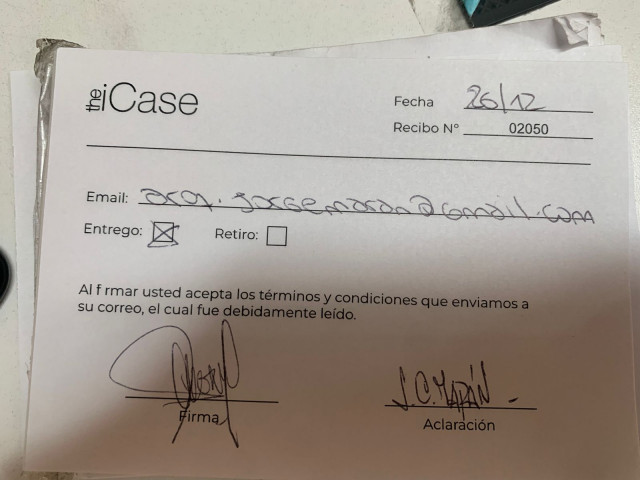 the iCase
Fecha 26/12
Recibo N° 02050
Email: arq.jorgemaran@gmail.com
Entrego: ☒ Retiro: ☐
Al f rmar usted acepta los términos y condiciones que enviamos a
su correo, el cual fue debidamente leído.
Firma
J.C. MARÁN -
Aclaración